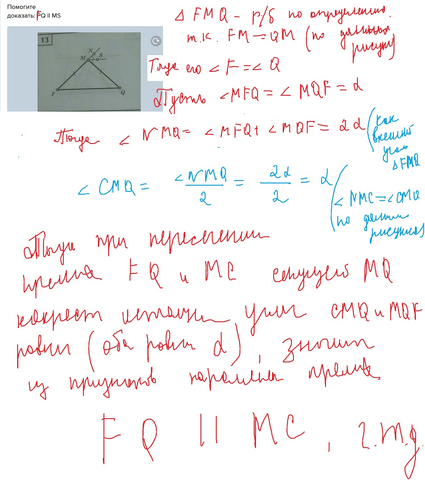 Помогите
доказать: FQ II MS
13
M N S
F Q
Δ FMQ - р/б по определению.
т.к. FM = QM (по данным рисунка)
Тогда его ∠F = ∠Q
Пусть ∠MFQ = ∠MQF = α
Тогда ∠NMQ = ∠MFQ + ∠MQF = 2α (как внешний угол ΔFMQ)
∠CMQ = ∠NMQ/2 = 2α/2 = α (∠NMC = ∠CMQ по данным рисунка)
Тогда при пересечении
прямых FQ и MC секущей MQ
накрест лежащие углы CMQ и MQF
равны (оба равны α), значит
из признаков параллельн прямых
FQ II MC, ч.т.д.